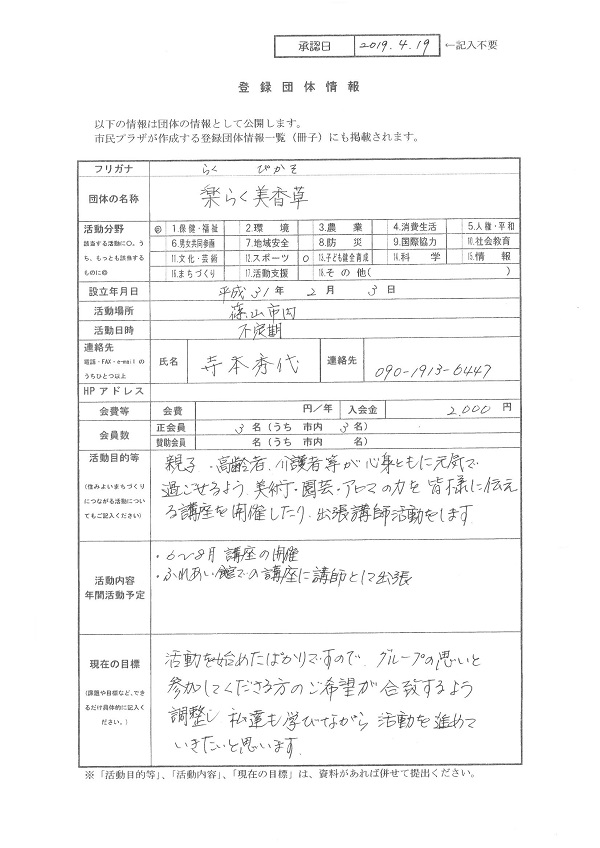 承認日 2019.4.19 ←記入不要
登録団体情報
以下の情報は団体の情報として公開します。
市民プラザが作成する登録団体情報一覧（冊子）にも掲載されます。
フリガナ らく びかそ
団体の名称 楽らく美香草
活動分野 ◎ 1.保健・福祉 2.環境 3.農業 4.消費生活 5.人権・平和
該当する活動に○。う 6.男女共同参画 7.地域安全 8.防災 9.国際協力 10.社会教育
ち、もっとも該当する 11.文化・芸術 12.スポーツ ○ 13.子ども健全育成 14.科学 15.情報
ものに◎ 16.まちづくり 17.活動支援 18.その他( )
設立年月日 平成31年 2月 3日
活動場所 篠山市内
活動日時 不定期
連絡先
電話・FAX・e-mailの
うちひとつ以上
氏名 寺本秀代 連絡先 090-1913-6447
HPアドレス
会費等 会費 円/年 入会金 2,000円
会員数 正会員 3名(うち 市内 3名)
賛助会員 名(うち 市内 名)
活動目的等
(住みよいまちづくり
につながる活動につい
てもご記入ください)
親子・高齢者、介護者等が心身ともに元気で
過ごせるよう、美術・園芸・アロマの力を皆様に伝え
る講座を開催したり、出張講師活動をします
活動内容
年間活動予定
・6～8月 講座の開催
・ふれあい館での講座に講師として出張
現在の目標
(課題や目標など、でき
るだけ具体的に記入く
ださい。)
活動を始めたばかりですので、グループの思いと
参加してくださる方のご希望が合致するよう
調整し 私達も学びながら 活動を進めて
いきたいと思います
※「活動目的等」、「活動内容」、「現在の目標」は、資料があれば併せて提出ください。